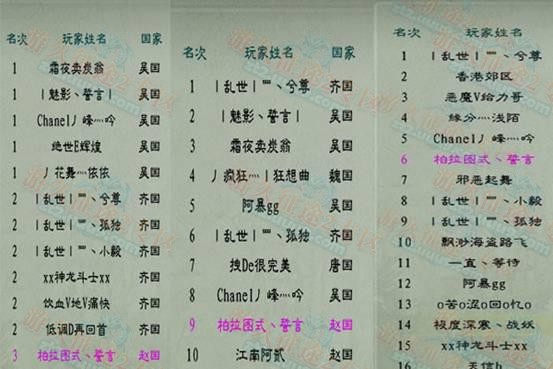 名次 玩家姓名 国家
1 霜夜卖炭翁 吴国
1 丨魅影丶誓言丨 吴国
1 Chanel丿峰灬吟 吴国
1 绝世E辉煌 吴国
1 丿花舞灬依依 吴国
2 丨乱世丨灬丶兮尊 齐国
2 丨乱世丨灬丶孤独 齐国
2 丨乱世丨灬丶小毅 齐国
2 xx神龙斗士xx 齐国
2 饮血V地V痛快 齐国
2 低调D再回首 齐国
3 柏拉图式丶誓言 赵国
名次 玩家姓名 国家
1 丨乱世丨灬丶兮尊 齐国
2 丨魅影丶誓言丨 吴国
3 霜夜卖炭翁 吴国
4 丿疯狂灬丨狂想曲 魏国
5 阿暴gg 吴国
6 丨乱世丨灬丶孤独 齐国
7 拽De很完美 唐国
8 Chanel丿峰灬吟 吴国
9 柏拉图式丶誓言 赵国
10 江南阿贰 赵国
名次 玩家姓名
1 丨乱世丨灬丶兮尊
2 香港郊区
3 恶魔V给力哥
4 缘分灬浅陌
5 Chanel丿峰灬吟
6 柏拉图式丶誓言
7 邪恶起舞
8 丨乱世丨灬丶小毅
9 丨乱世丨灬丶孤独
10 飘渺海盗路飞
11 一直丶等待
12 阿暴gg
13 o苦o涩o回o忆o
14 极度深寒丶战妖
15 xx神龙斗士xx
16 天信h